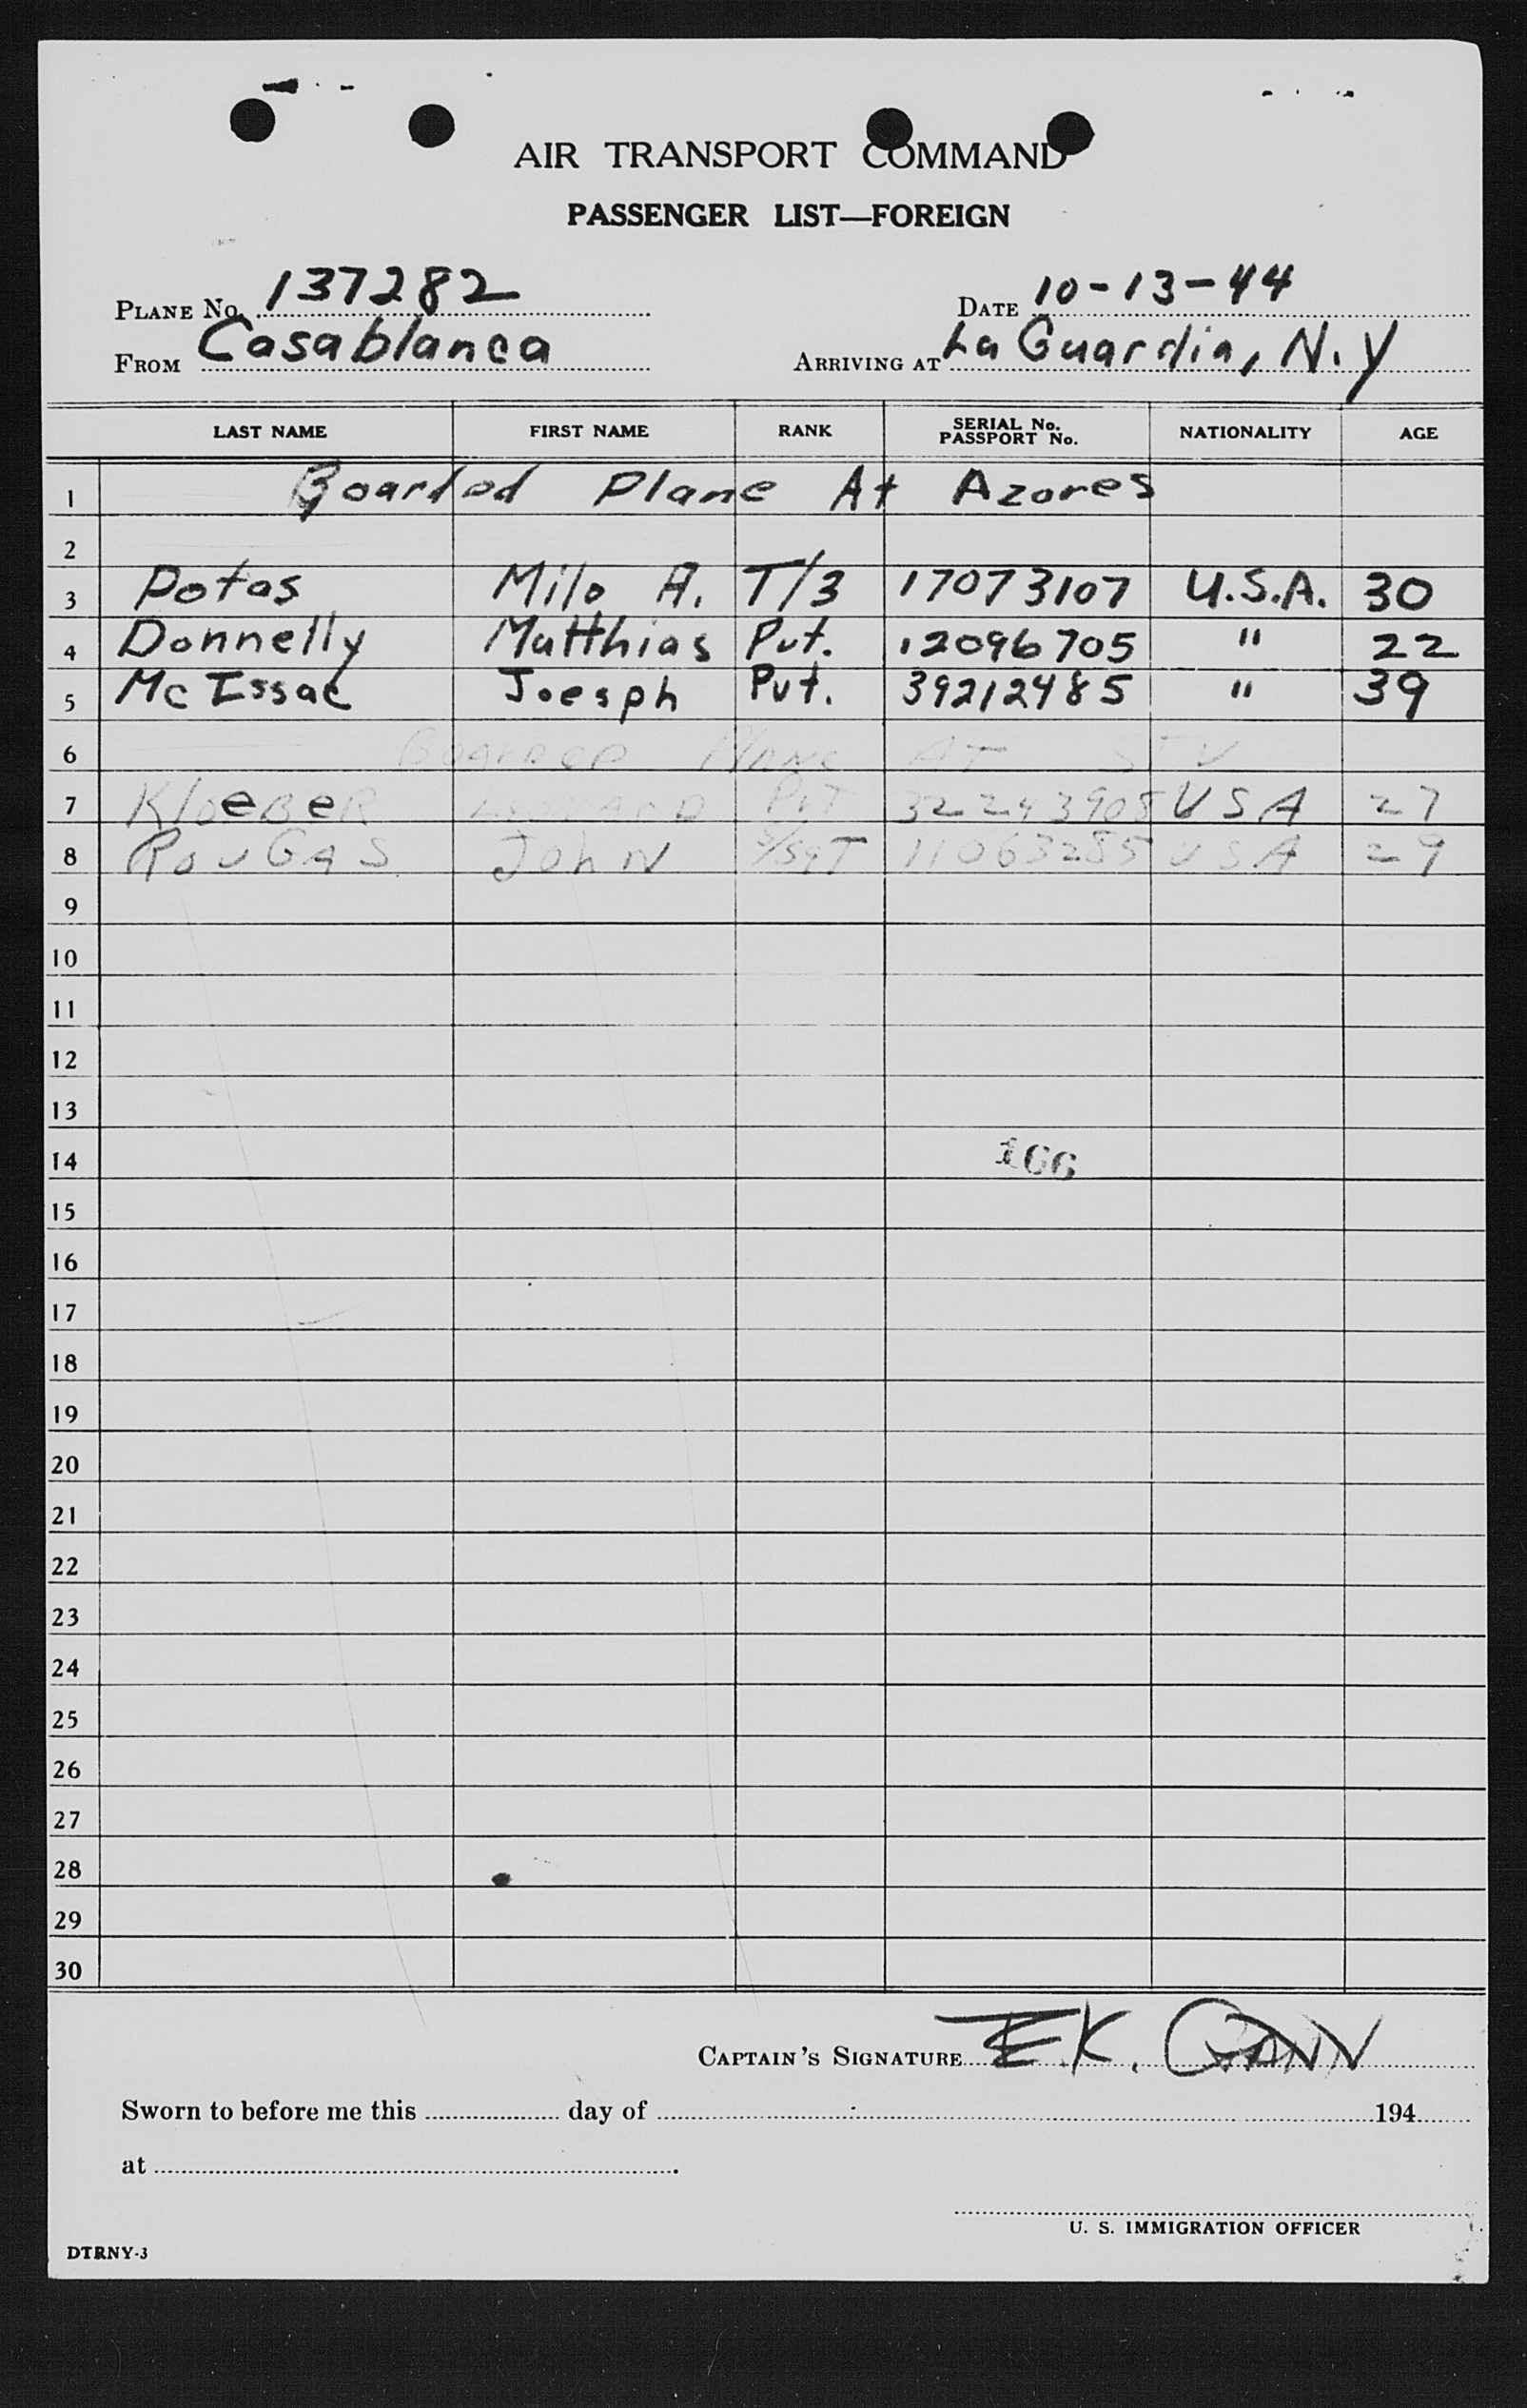 AIR TRANSPORT COMMAND
PASSENGER LIST—FOREIGN
PLANE No. 137282 DATE 10-13-44
FROM Casablanca ARRIVING AT La Guardia, N.Y
LAST NAME FIRST NAME RANK SERIAL No. PASSPORT No. NATIONALITY AGE
1 Boarded Plane At Azores
2
3 Potas Milo A. T/3 17073107 U.S.A. 30
4 Donnelly Matthias Pvt. 12096705 " 22
5 Mc Issac Joesph Pvt. 39212485 " 39
6 BOARDED PLANE AT
7 KloeBeR PvT 32243905 USA 27
8 RouGAS JohN S/SgT 11063285 USA 29
9
10
11
12
13
14 166
15
16
17
18
19
20
21
22
23
24
25
26
27
28
29
30
CAPTAIN'S SIGNATURE E.K. GANN
Sworn to before me this day of 194
at
U. S. IMMIGRATION OFFICER
DTRNY-3